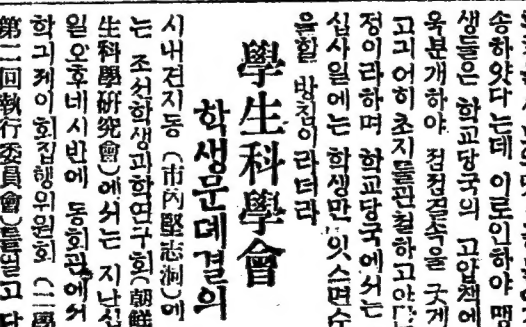 송하얏다는데 이로인하야 맹
생들은 학교당국의 고압책에
욱분개하야 점점결속을 굿게
고긔어히초지를관철하고야
정이라하며 학교당국에서는
십사일에는 학생만 잇스면수
을할 방침이라더라
學生科學會
학생문뎨결의
시내견지동 (市內堅志洞)에
는 조선학생과학연구회(朝鮮
生科學硏究會)에서는 지난십
일오후네시반에 동회관에서
학긔뎨이회집행위원회 (二學
第二回執行委員會)를열고 다